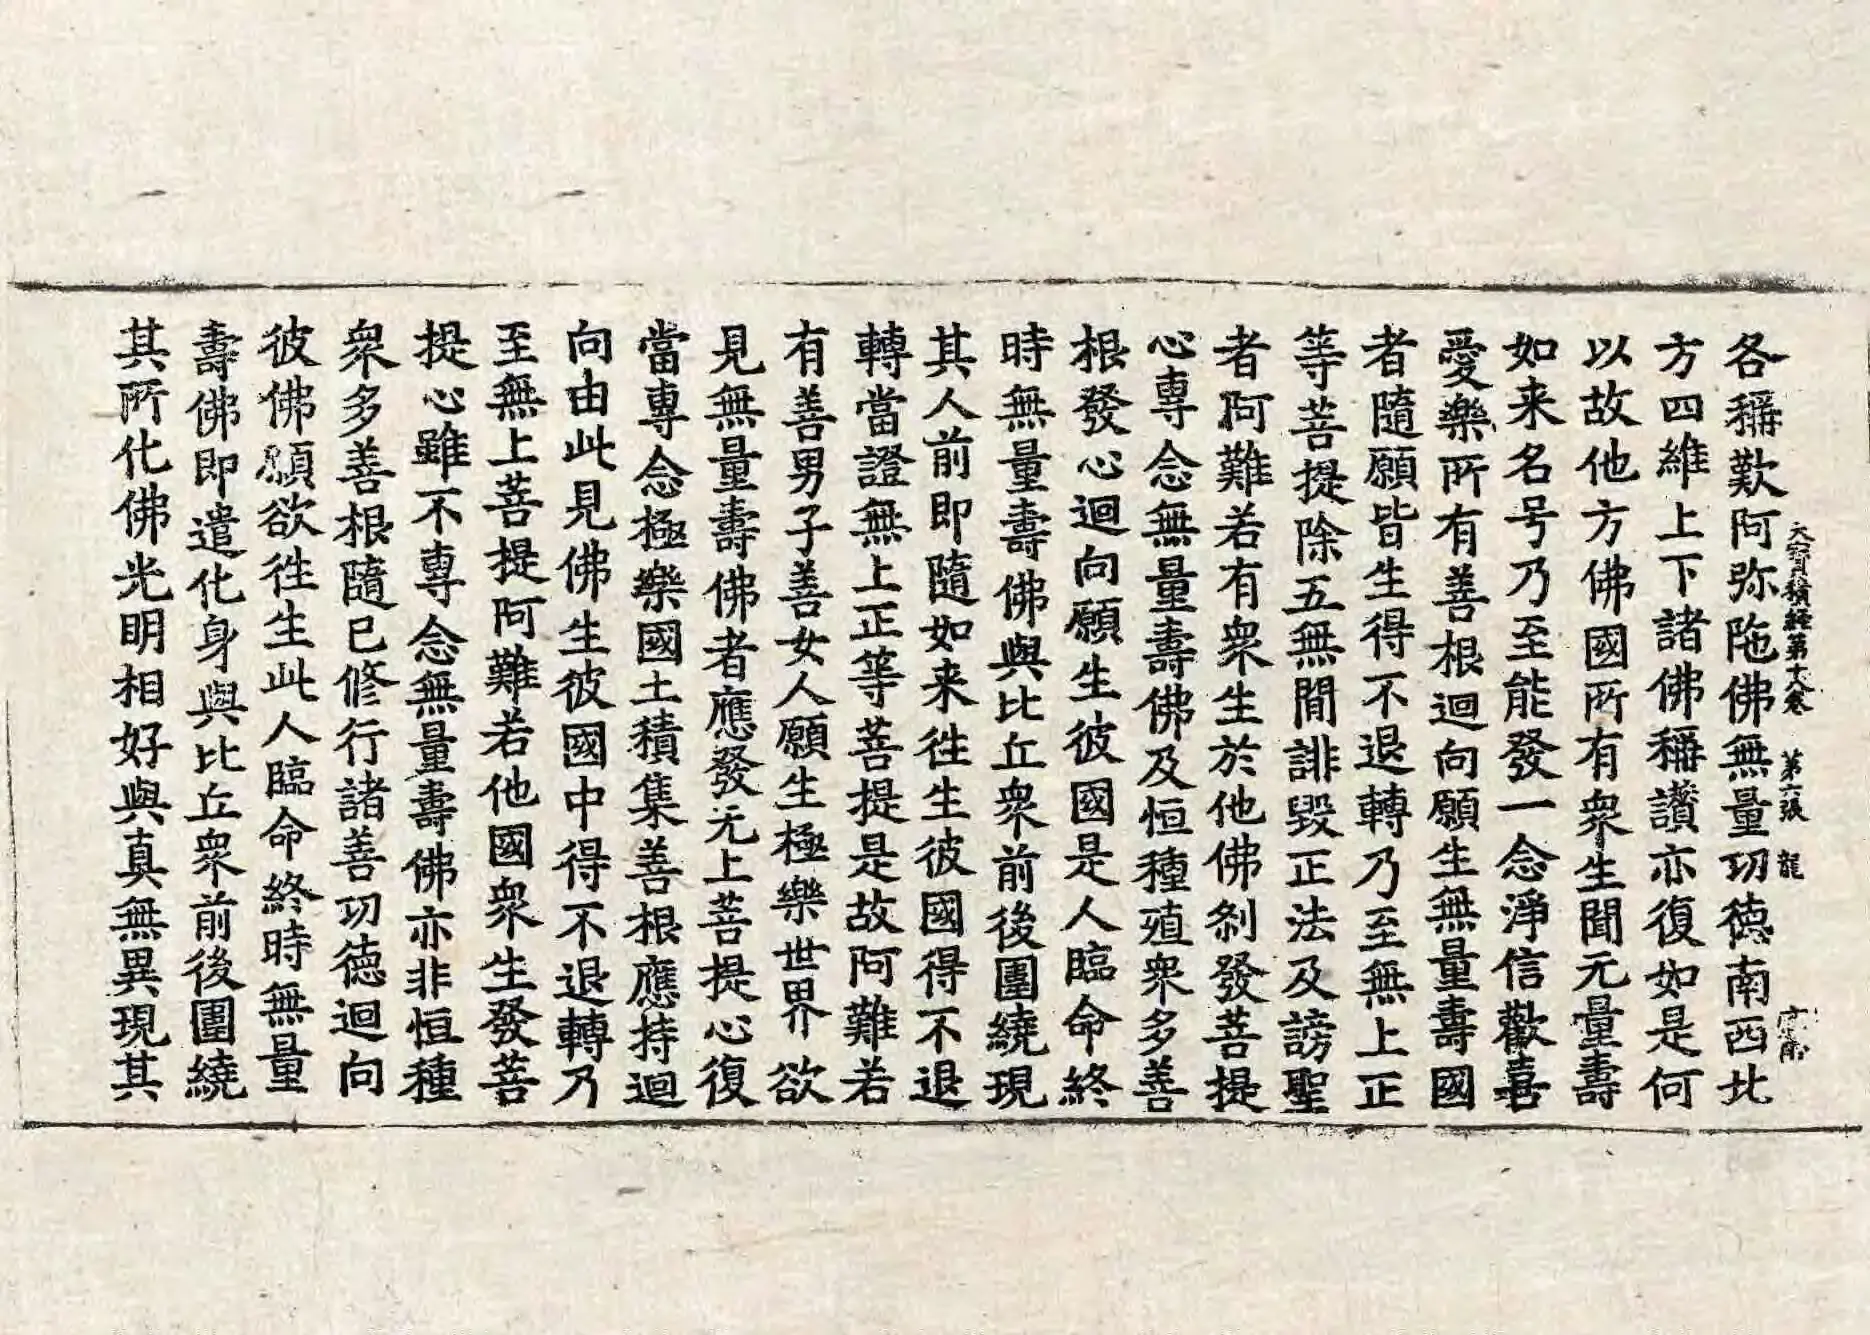 各稱歎阿弥陁佛無量功德南西北
大寶積経第十八卷 第六張 龍
方四維上下諸佛稱讃亦復如是何
以故他方佛國所有衆生聞无量壽
如来名号乃至能發一念淨信歡喜
愛樂所有善根迴向願生無量壽國
者隨願皆生得不退轉乃至無上正
等菩提除五無間誹毀正法及謗聖
者阿難若有衆生於他佛刹發菩提
心專念無量壽佛及恒種殖衆多善
根發心迴向願生彼國是人臨命終
時無量壽佛與比丘衆前後圍繞現
其人前即隨如来往生彼國得不退
轉當證無上正等菩提是故阿難若
有善男子善女人願生極樂世界欲
見無量壽佛者應發无上菩提心復
當專念極樂國土積集善根應持迴
向由此見佛生彼國中得不退轉乃
至無上菩提阿難若他國衆生發菩
提心雖不專念無量壽佛亦非恒種
衆多善根隨已修行諸善功德迴向
彼佛願欲往生此人臨命終時無量
壽佛即遣化身與比丘衆前後圍繞
其所化佛光明相好與真無異現其